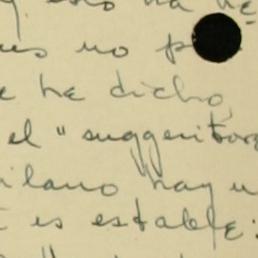 y esto ha he
es no p
e he dicho,
el "suggeritore
ilano hay u
t es estable: